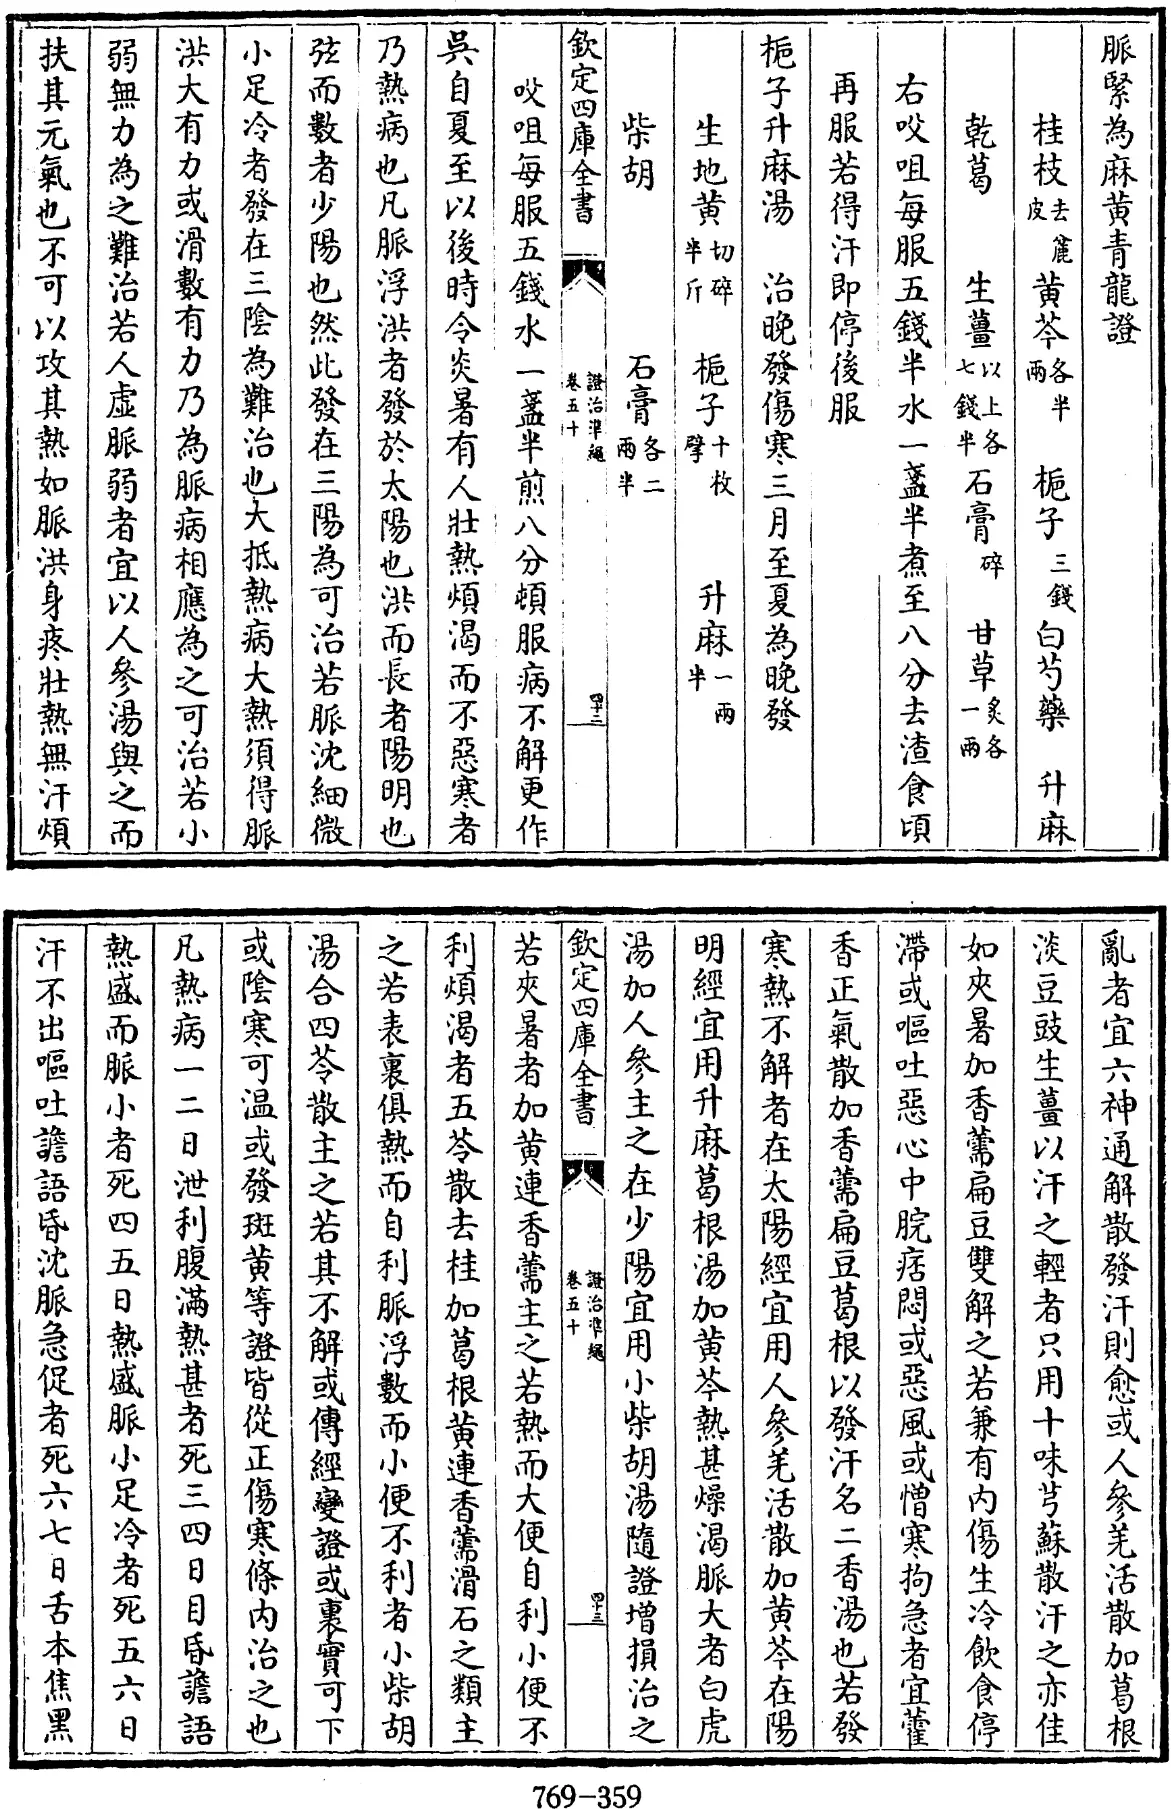 脈緊為麻黄青龍證
桂枝去麄皮 黄芩各半兩 梔子三錢 白芍藥 升麻
乾葛 生薑以上各七錢半 石膏碎 甘草炙各一兩
右㕮咀每服五錢半水一盞半煮至八分去渣食頃
再服若得汗即停後服
梔子升麻湯 治晚發傷寒三月至夏為晚發
生地黄切碎半斤 梔子十枚擘 升麻一兩半
柴胡 石膏各二兩半
欽定四庫全書 證治準繩卷五十 四十二
㕮咀每服五錢水一盞半煎八分頓服病不解更作
吳自夏至以後時令炎暑有人壯熱煩渴而不惡寒者
乃熱病也凡脈浮洪者發於太陽也洪而長者陽明也
弦而數者少陽也然此發在三陽為可治若脈沈細微
小足冷者發在三陰為難治也大抵熱病大熱須得脈
洪大有力或滑數有力乃為脈病相應為之可治若小
弱無力為之難治若人虚脈弱者宜以人參湯與之而
扶其元氣也不可以攻其熱如脈洪身疼壯熱無汗煩
亂者宜六神通解散發汗則愈或人參羌活散加葛根
淡豆豉生薑以汗之輕者只用十味芎蘇散汗之亦佳
如夾暑加香薷扁豆雙解之若兼有内傷生冷飲食停
滯或嘔吐惡心中脘痞悶或惡風或憎寒拘急者宜藿
香正氣散加香薷扁豆葛根以發汗名二香湯也若發
寒熱不解者在太陽經宜用人參羌活散加黄芩在陽
明經宜用升麻葛根湯加黄芩熱甚燥渴脈大者白虎
湯加人參主之在少陽宜用小柴胡湯隨證增損治之
欽定四庫全書 證治準繩卷五十 四十三
若夾暑者加黄連香薷主之若熱而大便自利小便不
利煩渴者五苓散去桂加葛根黄連香薷滑石之類主
之若表裏俱熱而自利脈浮數而小便不利者小柴胡
湯合四苓散主之若其不解或傳經變證或裏實可下
或陰寒可温或發斑黄等證皆從正傷寒條内治之也
凡熱病一二日泄利腹滿熱甚者死三四日目昏譫語
熱盛而脈小者死四五日熱盛脈小足冷者死五六日
汗不出嘔吐譫語昏沈脈急促者死六七日舌本焦黑
769-359